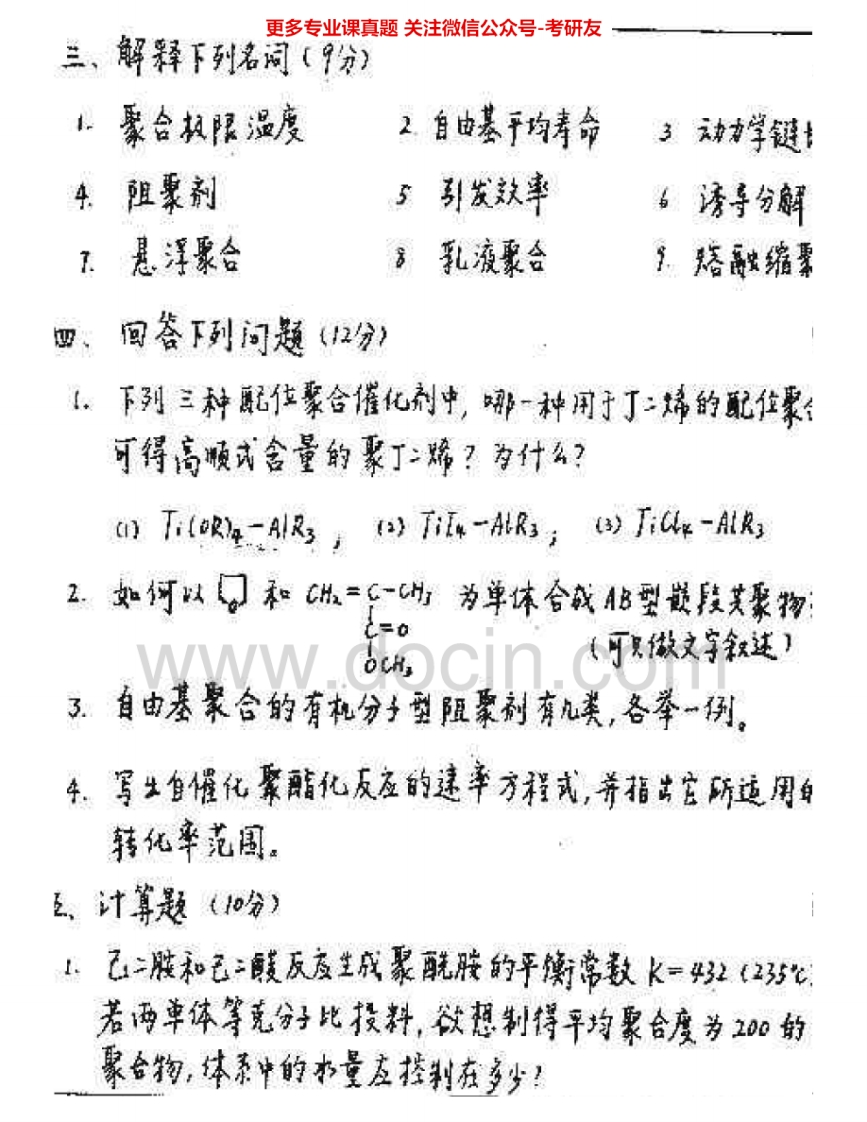 更多专业课真题 关注微信公众号-考研友
三、解释下列名词(9分)
1. 聚合极限温度 2. 自由基平均寿命 3 动力学链
4. 阻聚剂 5 引发效率 6 诱导分解
7. 悬浮聚合 8 乳液聚合 9. 熔融缩聚
四、回答下列问题(12分)
1. 下列三种配位聚合催化剂中,哪一种用于丁二烯的配位聚合
可得高顺式含量的聚丁二烯?为什么?
(1) Ti(OR)4-AlR3; (2) TiI4-AlR3; (3) TiCl4-AlR3
2. 如何以 O 和 CH2=C-CH3 为单体合成AB型嵌段共聚物
C=O
(可只做文字叙述)
OCH3
www.docin.com
3. 自由基聚合的有机分子型阻聚剂有几类,各举一例。
4. 写出自催化聚酯化反应的速率方程式,并指出它所适用的
转化率范围。
五、计算题(10分)
1. 己二胺和己二酸反应生成聚酰胺的平衡常数 K=432(235℃
若两单体等克分子比投料,欲想制得平均聚合度为200的
聚合物,体系中的水量应控制在多少?